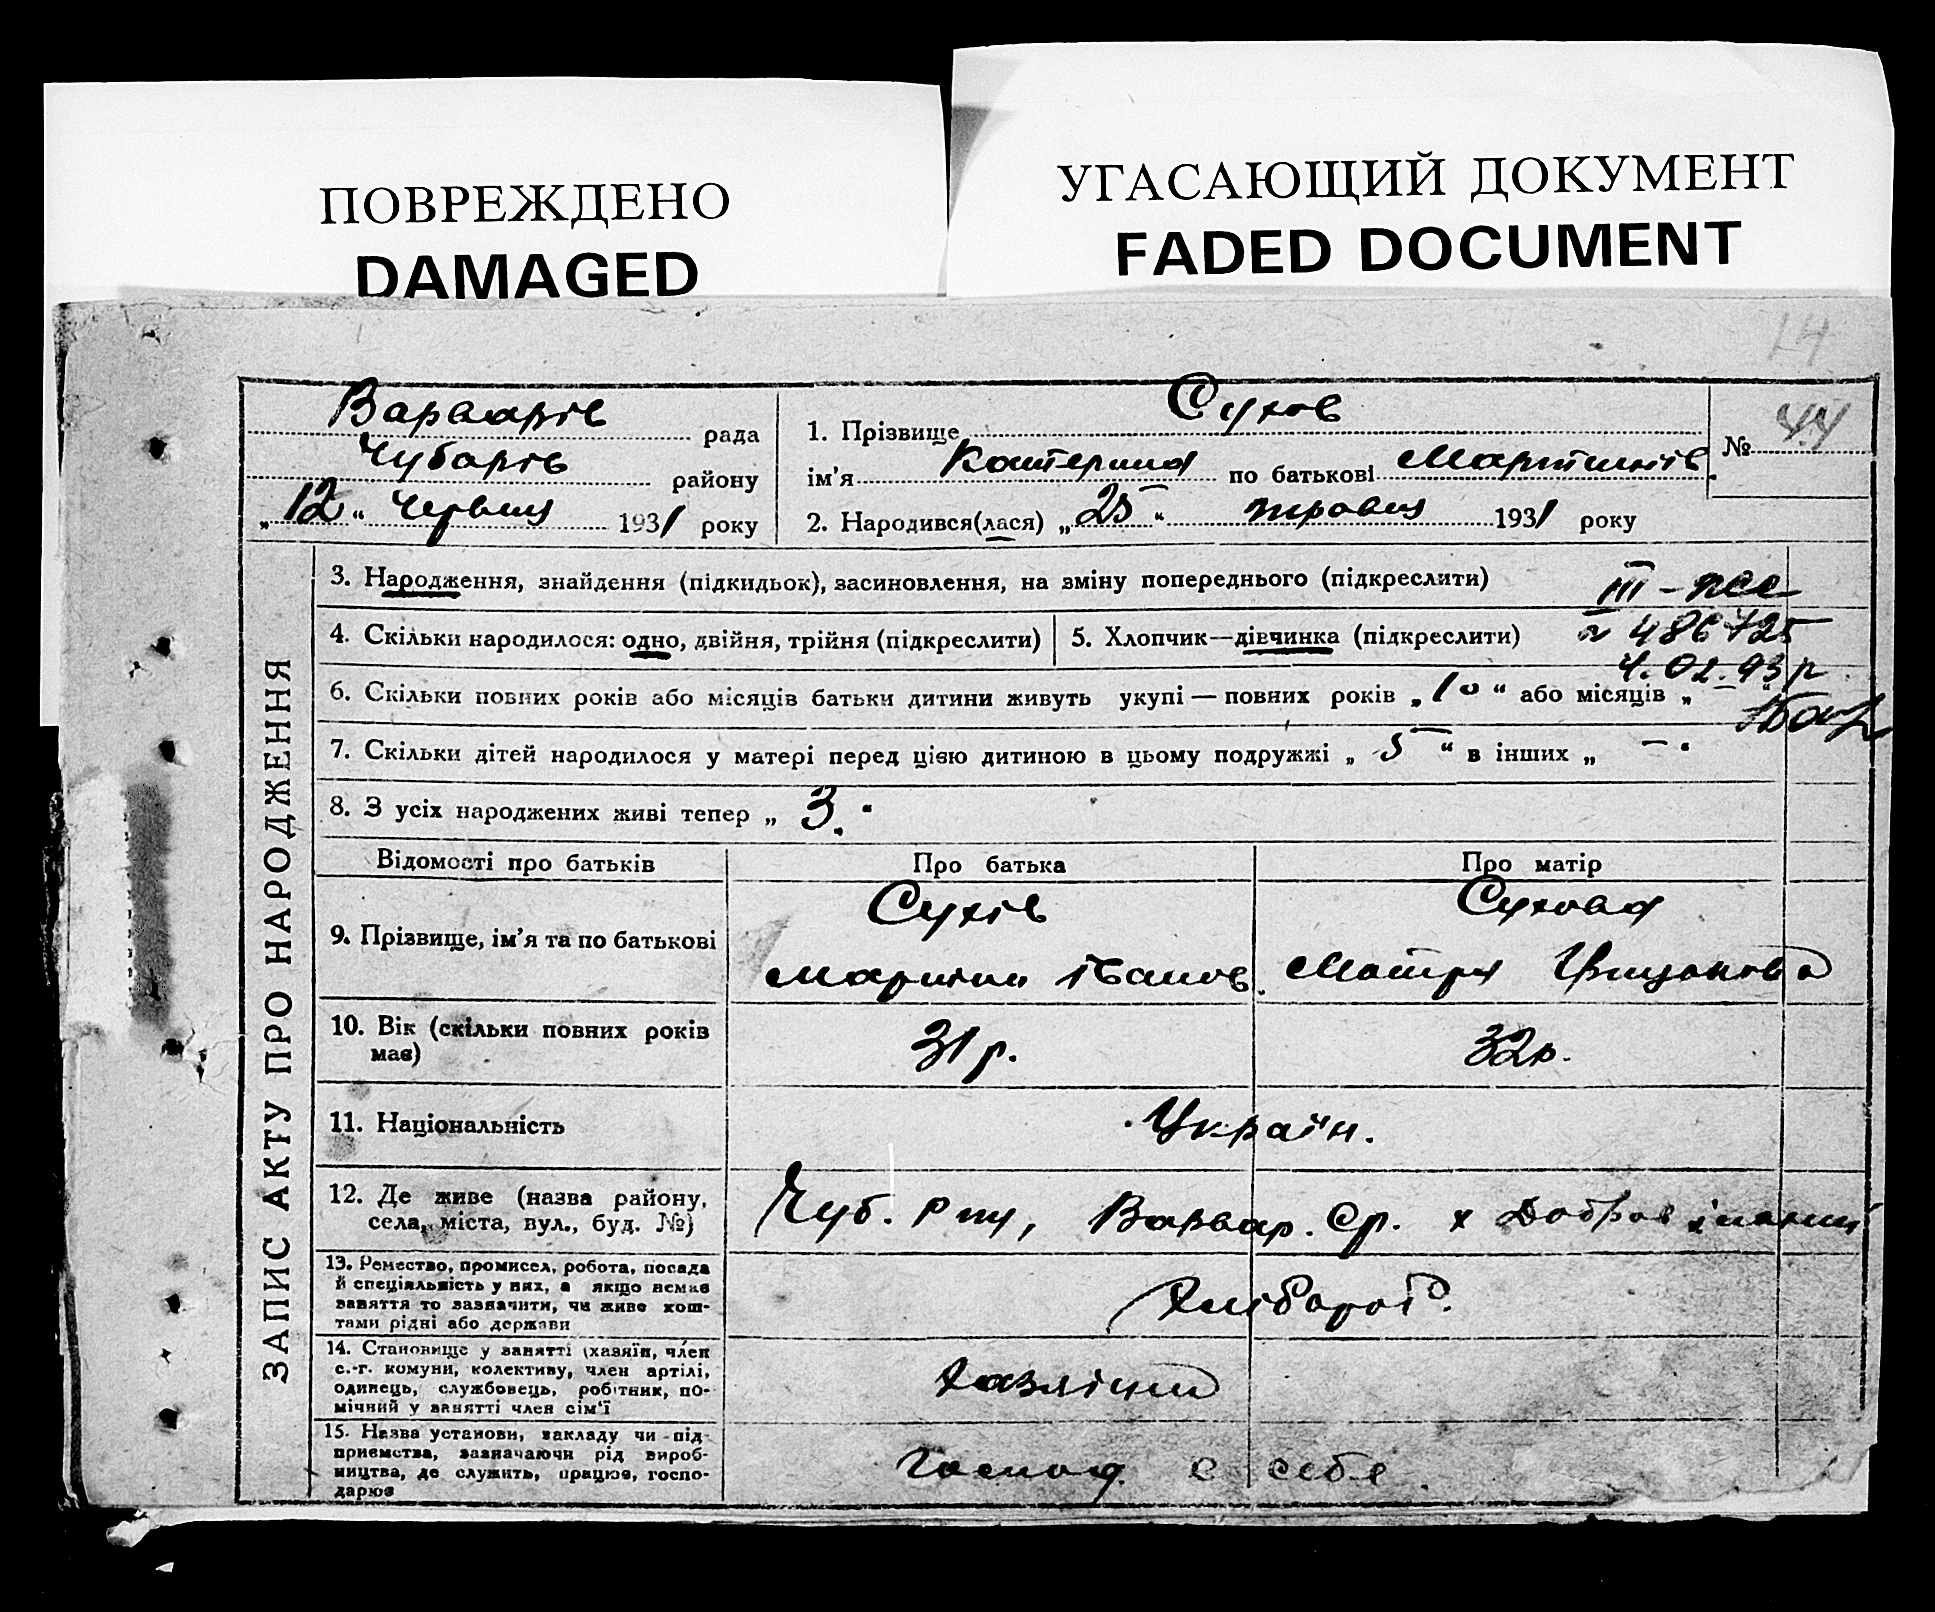 ПОВРЕЖДЕНО
DAMAGED
УГАСАЮЩИЙ ДОКУМЕНТ
FADED DOCUMENT
14
Варварів рада
Чубарів району
„12“ Червня 1931 року
1. Прізвище Сухов
ім'я Катерина по батькові Мартинів.
2. Народився(лася) „25“ травня 1931 року
№ 44
ЗАПИС АКТУ ПРО НАРОДЖЕННЯ
3. Народження, знайдення (підкидьок), засиновлення, на зміну попереднього (підкреслити)
III-
486725
4. Скільки народилося: одно, двійня, трійня (підкреслити)
5. Хлопчик—дівчинка (підкреслити)
4.02.93р
6. Скільки повних років або місяців батьки дитини живуть укупі — повних років „10“ або місяців „–“
7. Скільки дітей народилося у матері перед цією дитиною в цьому подружжі „5“ в інших „ –“
8. З усіх народжених живі тепер „3.“
Відомості про батьків Про батька Про матір
9. Прізвище, ім'я та по батькові
Сухів
Мартин Іванов.
Сухова
Мотря
10. Вік (скільки повних років
має)
31р. 32р.
11. Національність Україн.
12. Де живе (назва району,
села, міста, вул., буд. №)
Чуб. р ну, Варвар. Ср. х
13. Ремество, промисел, робота, посада
й спеціяльність у них, а якщо немає
заняття то зазначити, чи живе кош-
тами рідні або держави
Хлібороб.
14. Становище у занятті (хазяїн, член
с.-г. комуни, колективу, член артілі,
одинець, службовець, робітник, по-
мічний у занятті член сім'ї
15. Назва установи, закладу чи під-
приємства, зазначаючи рід вироб-
ництва, де служить, працює, госпо-
дарює
Господ. с себе